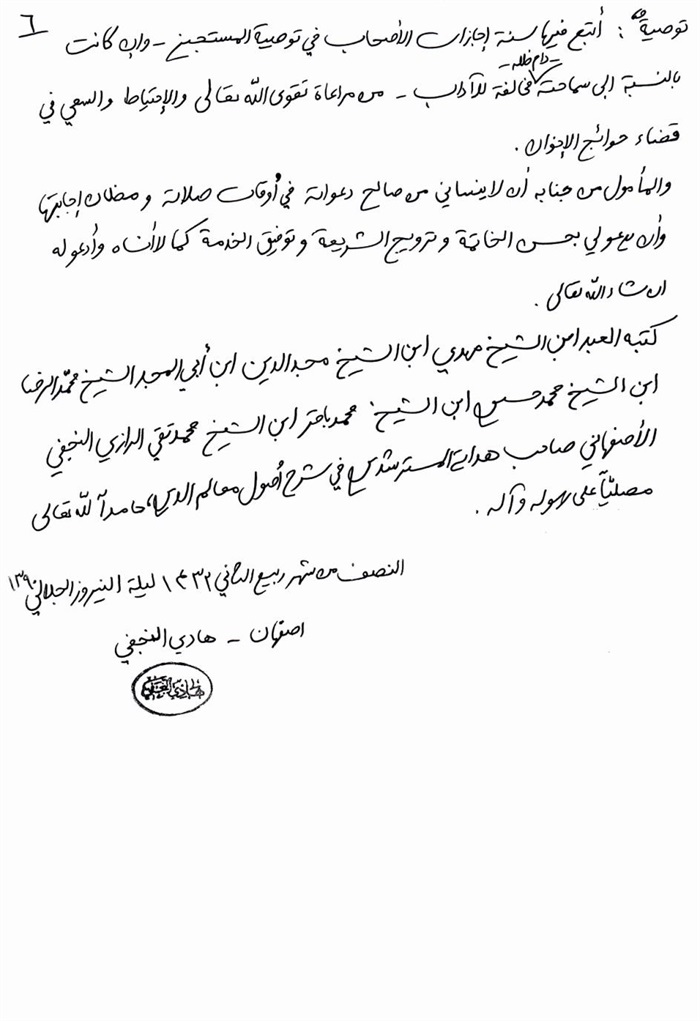 ٦
توصية: أتبع فيها سنة إجازات الأصحاب في توصية المستجيز - وإن كانت
- دام ظله -
بالنسبة إلى سماحته مخالفة للآداب - من مراعاة تقوى الله تعالى والإحتياط والسعي في
قضاء حوائج الإخوان.
والمأمول من جنابه أن لا ينساني من صالح دعواته في أوقات صلاته و مظان إجابتها
وأن يدعو لي بحسن الخاتمة و ترويج الشريعة و توفيق الخدمة كما لا أنساه وأدعو له
ان شاء الله تعالى.
كتبه العبد ابن الشيخ مهدي ابن الشيخ مجد الدين ابن أبي المجد الشيخ محمد الرضا
ابن الشيخ محمد حسين ابن الشيخ محمد باقر ابن الشيخ محمد تقي الرازي النجفي
الأصفهاني صاحب هداية المسترشدين في شرح أصول معالم الدين، حامداً لله تعالى
مصلياً على رسوله و آله.
النصف من شهر ربيع الثاني ١٤٣٢ ليلة النيروز الجلالي ١٣٩٠
اصفهان - هادي النجفي
هادي النجفي